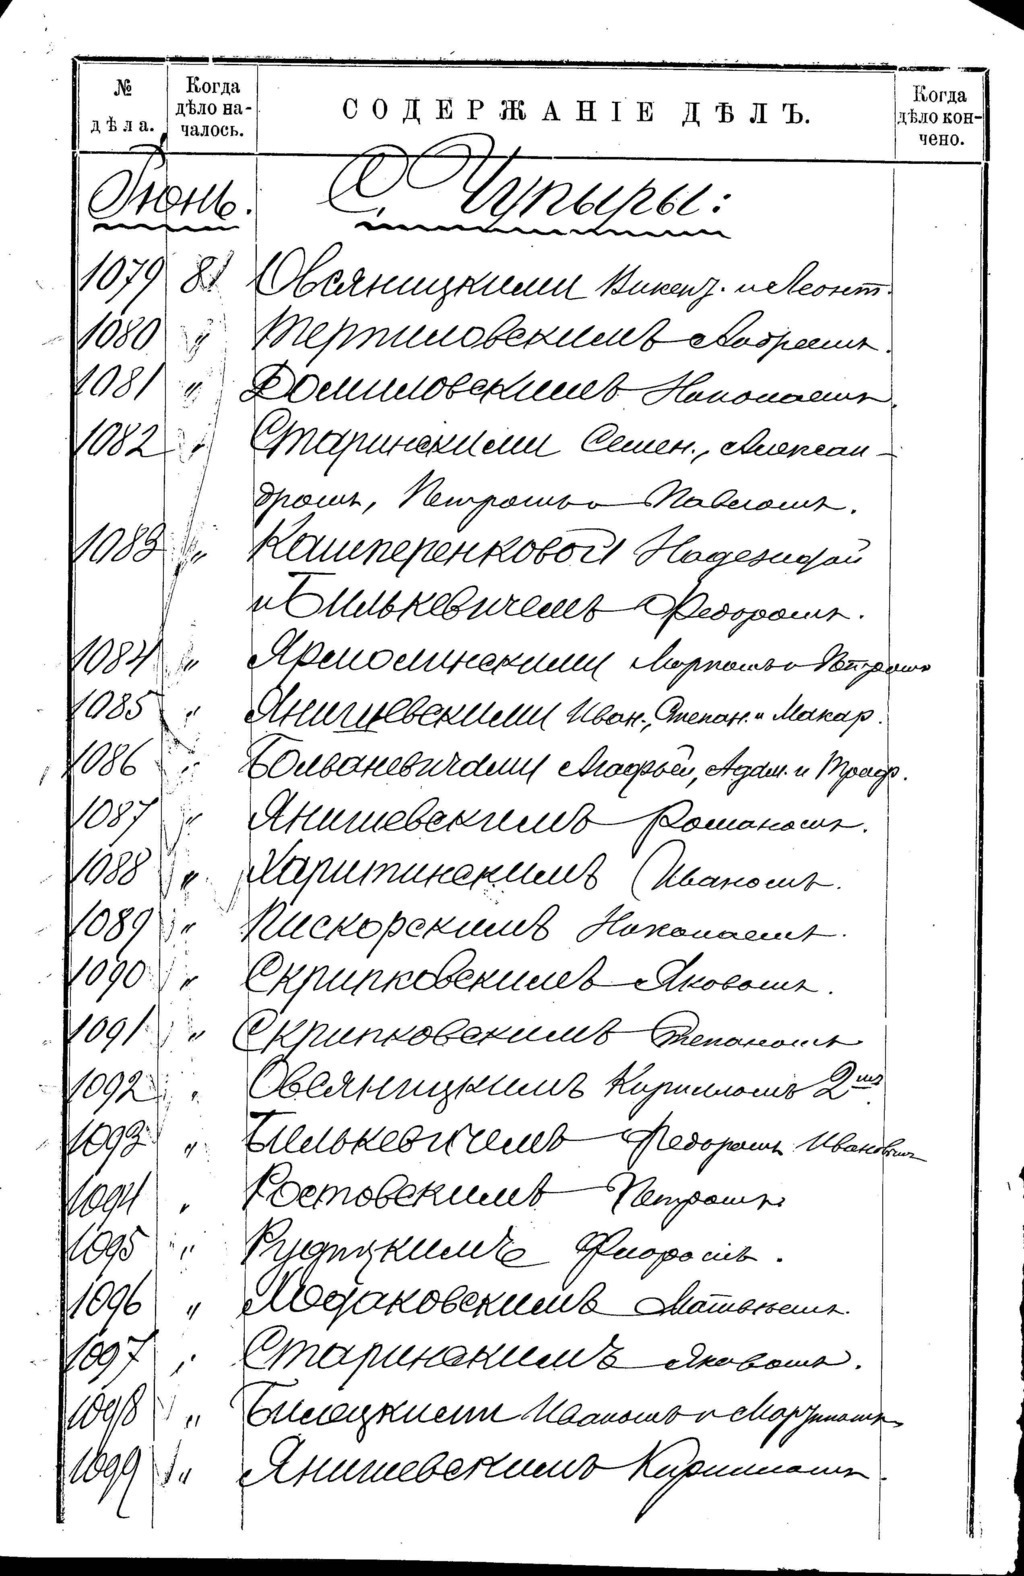 № дѣла. Когда дѣло началось. СОДЕРЖАНІЕ ДѢЛЪ. Когда дѣло кончено.
Іюнь. С. Чупыры:
1079 81 Овсяницкими Викент. и Леонт.
1080 " Терпиловскимъ Андреемъ.
1081 " Домиловскимъ Николаемъ.
1082 " Старинскими Семен., Алексан-
дромъ, Петромъ и Павломъ.
1083 " Кашперенковой Надеждой
и Билькевичемъ Федоромъ.
1084 " Ярмолинскими Маркомъ и Петромъ
1085 " Янишевскими Иван., Степан. и Макар.
1086 " Болваневичами Агафьей, Адам. и Троф.
1087 " Янишевскимъ Романомъ.
1088 " Харитинскимъ Иваномъ.
1089 " Пискорскимъ Николаемъ.
1090 " Скрипковскимъ Яковомъ.
1091 " Скрипковскимъ Степаномъ
1092 " Овсяницкимъ Кирилломъ 2мъ.
1093 " Билькевичемъ Федоромъ Ивановичъ
1094 " Ростовскимъ Петромъ
1095 " Рудицкимъ Флоромъ.
1096 " Ходаковскимъ Матвѣемъ.
1097 " Старинскимъ Яковомъ.
1098 " Билецкими Иваномъ и Мартиномъ
1099 " Янишевскимъ Кирилломъ.